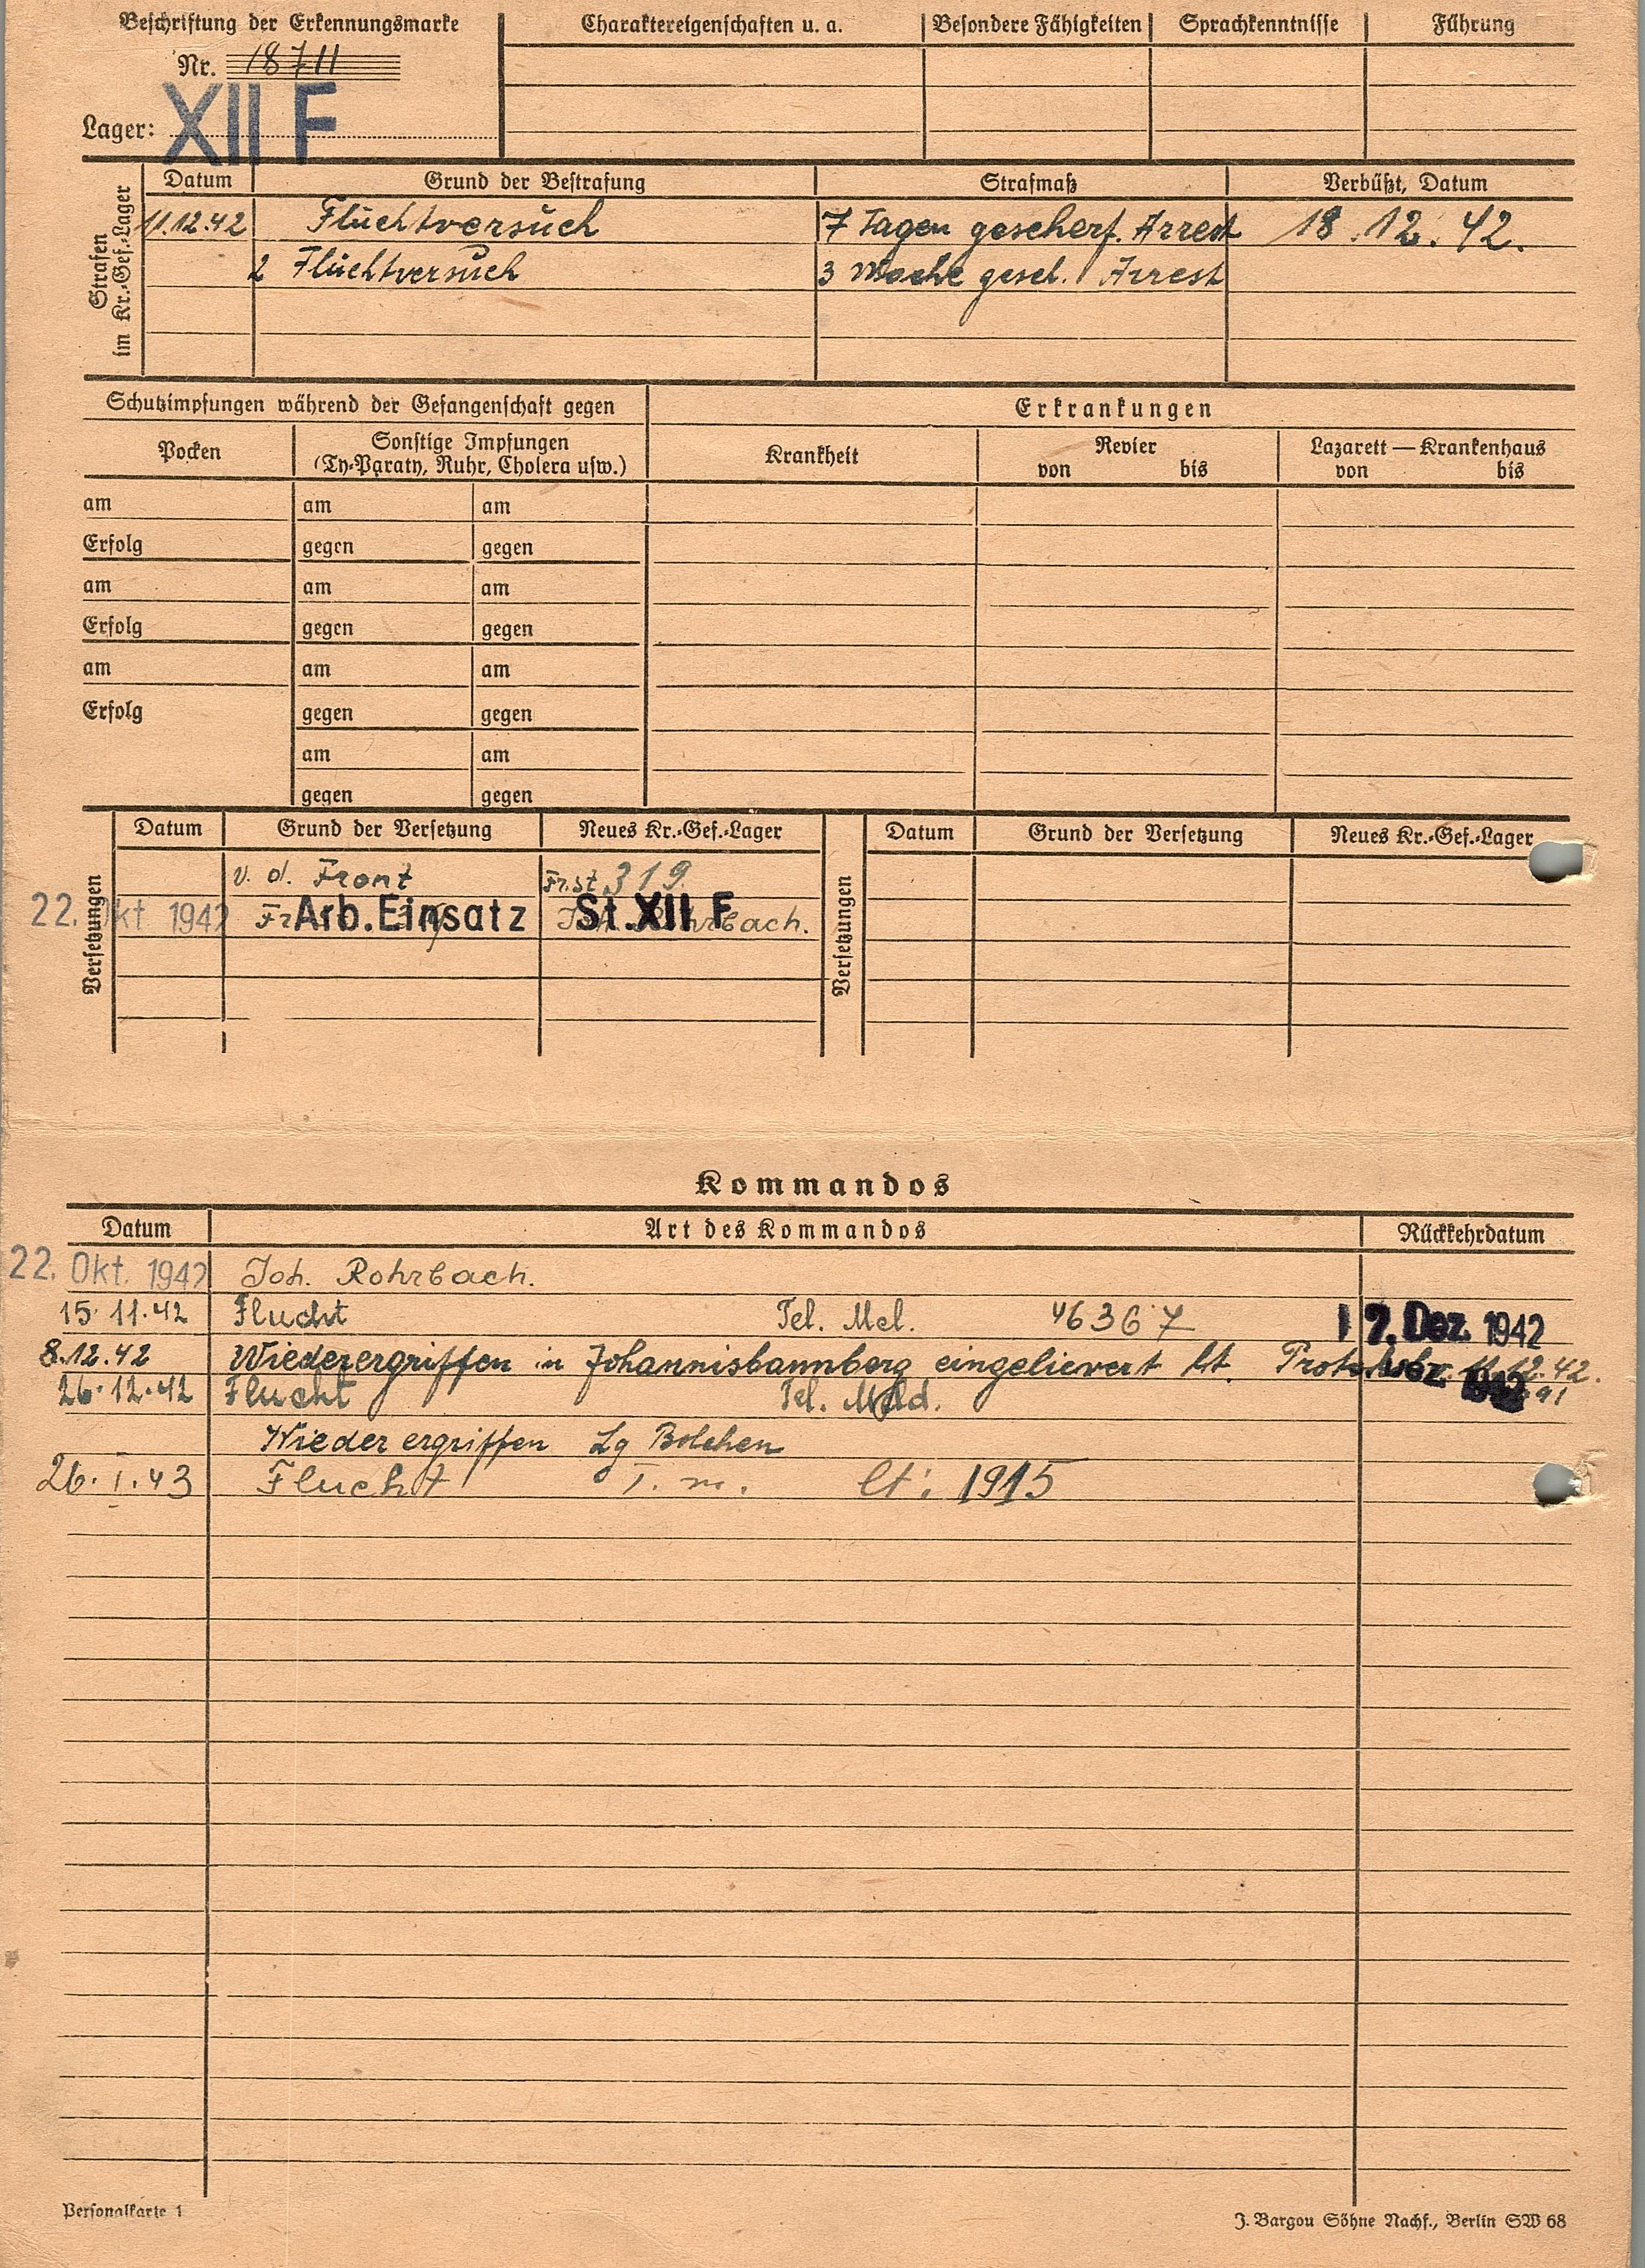 Beschriftung der Erkennungsmarke
Nr. 18711
Lager: XII F
Charaktereigenschaften u. a. Besondere Fähigkeiten Sprachkenntnisse Führung
Strafen im Kr.-Gef.-Lager
Datum Grund der Bestrafung Strafmaß Verbüßt, Datum
11.12.42 Fluchtversuch 7 Tagen gescherf. Arrest 18.12.42.
2 Fluchtversuch 3 Woche gesch. Arrest
Schutzimpfungen während der Gefangenschaft gegen Erkrankungen
Pocken Sonstige Impfungen Krankheit Revier Lazarett — Krankenhaus
(Ty-Paraty, Ruhr, Cholera usw.) von bis von bis
am am am
Erfolg gegen gegen
am am am
Erfolg gegen gegen
am am am
Erfolg gegen gegen
am am
gegen gegen
Versetzungen Datum Grund der Versetzung Neues Kr.-Gef.-Lager Versetzungen Datum Grund der Versetzung Neues Kr.-Gef.-Lager
v. d. Front Fr.st 319
22. Okt 1942 Arb.Einsatz St.XII F
Kommandos
Datum Art des Kommandos Rückkehrdatum
22. Okt. 1942 Joh. Rohrbach.
15.11.42 Flucht Tel. Mel. 46367 17. Dez. 1942
8.12.42 Wiederergriffen in Johannisbannberg eingelievert lt. 11.12.42.
26.12.42 Flucht Tel. Meld.
Wieder ergriffen Lg Bolchen
26.I.43 Flucht T. m. lt: 1915
Personalkarte 1
J. Bargou Söhne Nachf., Berlin SW 68